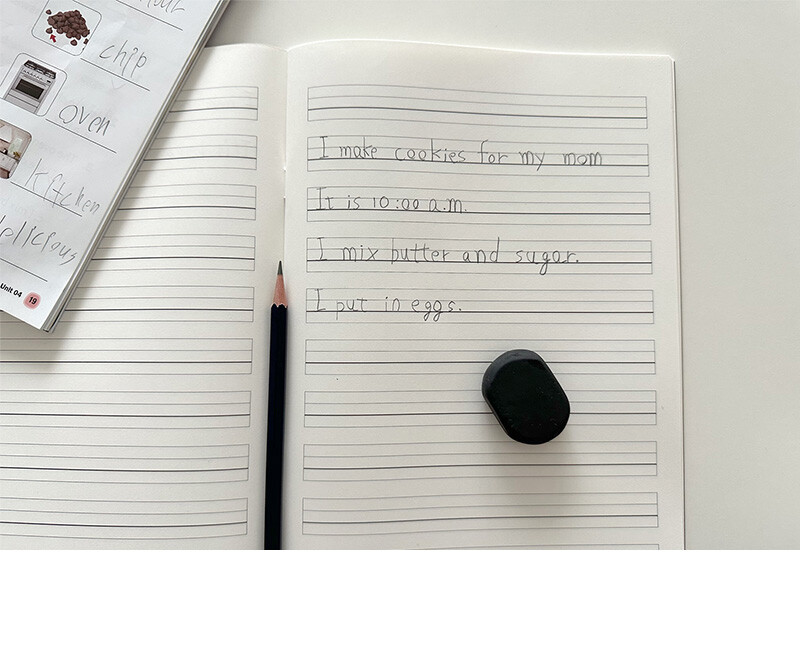 chip
oven
kitchen
delicious
Unit 04 19
I make cookies for my mom
It is 10:00 a.m.
I mix butter and sugar.
I put in eggs.